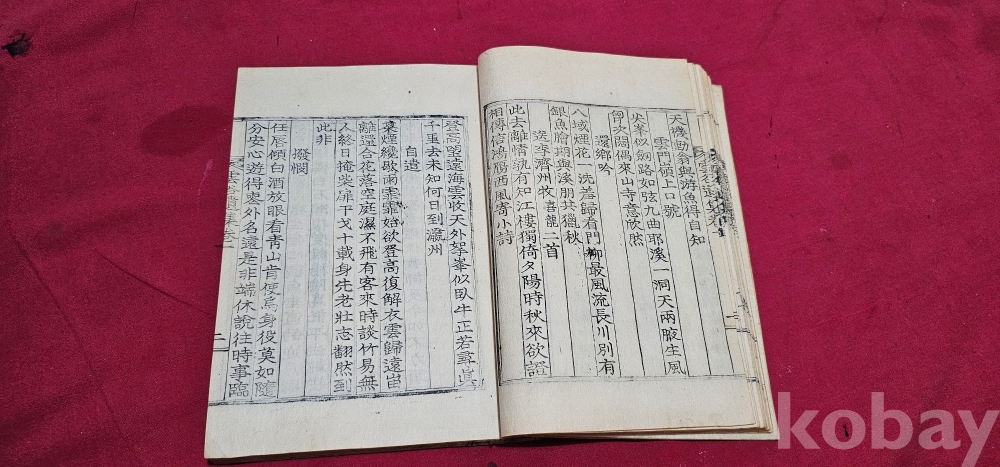 天機動翁與游魚得自知
雲門傾上口號
尖峯似劒路如弦九曲耶溪一洞天兩腋生風
閑偶來山寺意欣然
還鄕吟
八域煙花 洗羞歸看門柳最風流長川別有
銀魚膾期與溪朋共獵秋
送李濟州牧喜龍二首
此去離情孰有知江樓獨倚夕陽時秋來欲證
相傳信鴻鴈西風寄小詩
登高望遠海雲收天外拏峯似臥牛正若尋眞
千重去未知何日到瀛州
自遣
棄煙纔歇雨霏霏始欲登高復解衣雲歸遠岫
離還合花落空庭濕不飛有客來時談竹易無
人終日掩柴扉干戈十載身先老壯志翻然到
此非
撥憫
任唇傾白酒放眼看靑山肯使爲身役莫如隨
分安心遊得意外名還是非端休說往時事臨
二
kobay